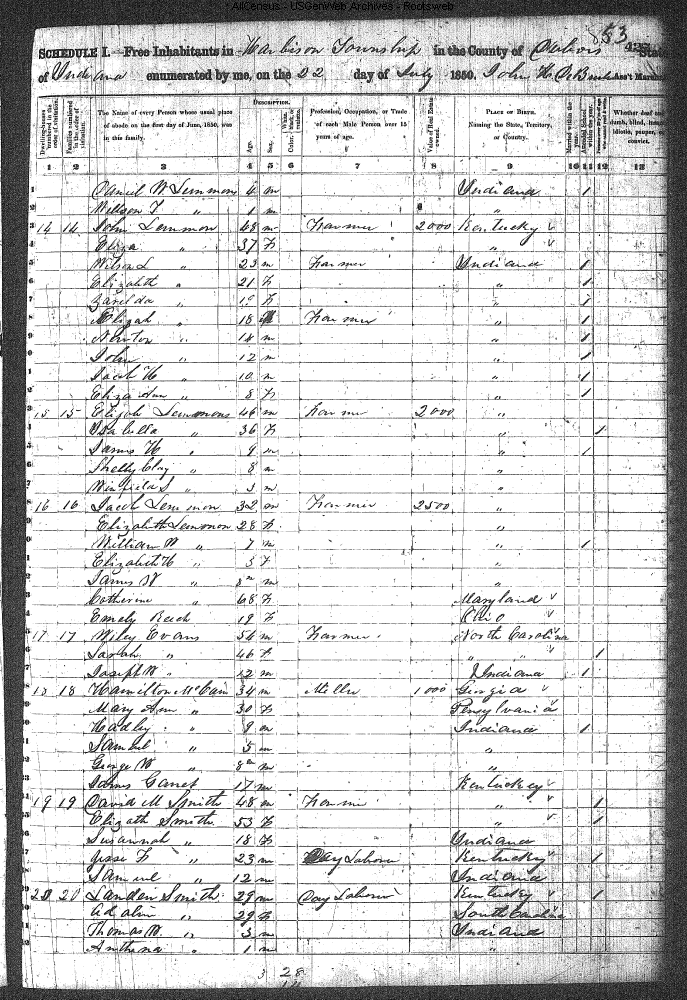 AllCensus - USGenWeb Archives - Rootsweb
853
SCHEDULE I.—Free Inhabitants in Harbison Township in the County of Dubois State
of Indiana enumerated by me, on the 22 day of July 1850. John H. Ass't Marshal
DESCRIPTION.
Dwelling-houses numbered in the order of visitation.
Families numbered in the order of visitation.
The Name of every Person whose usual place of abode on the first day of June, 1850, was in this family.
Age.
Sex.
Color.
Profession, Occupation, or Trade of each Male Person over 15 years of age.
Value of Real Estate owned.
PLACE OF BIRTH. Naming the State, Territory, or Country.
Married within the year.
Attended School within the year.
Whether deaf and dumb, blind, insane, idiotic, pauper, or convict.
1 2 3 4 5 6 7 8 9 10 11 12 13
Daniel W Lemmon 4 m Indiana 1
Willson T " 1 m "
14 14 John Lemmon 48 m Farmer 2000 Kentucky
Eliza " 37 F "
Wilson L " 23 m Farmer Indiana 1
Elizabeth " 21 F " 1
Zarelda " F " 1
Elijah " 18 M Farmer " 1
Newton " 14 m " 1
John " 12 m " 1
Jacob H " 10 m " 1
Eliza Ann " 8 F " 1
15 15 Elijah Lemmons 46 m Farmer 2000 "
Isabella " 36 F " 1
James H " 9 m " 1
Shelby Clay " 8 m "
Winfield S " 3 m "
16 16 Jacob Lemmon 32 m Farmer 2500 "
Elizabeth Lemmon 28 F "
William " 7 m " 1
Elizabeth " 3 F "
James W " m "
Catherine " 68 F Maryland
Emely 19 F Ohio
17 17 Wiley Evans 54 m Farmer North Carolina
Sarah " 46 F " " 1
Joseph W " 12 m Indiana 1
18 18 Hamilton McCain 34 m Miller 1000 Georgia
Mary Ann " 30 F Pensylvania
Hadley " 8 m Indiana 1
Samuel " 5 m "
George W " m "
James 17 m Kentucky
19 19 David M Smith 48 m Farmer " 1
Elizath Smith 53 F " 1
Susannah " 18 F Indiana
Jesse F " 23 m Day Laborer Kentucky 1
Samuel " 12 m Indiana
20 20 Landen Smith 29 m Day Laborer Kentucky 1
29 F South Carolina
Thomas " 3 m Indiana
1 m "
3 28